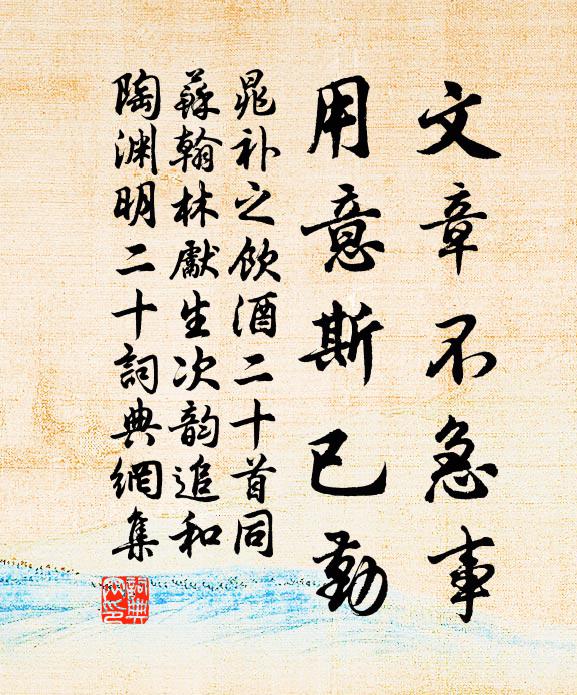 文章不急事
用意斯已勤
晁补之飲酒二十首同
蘇翰林獻生次韵追和
陶渊明二十詞典網集